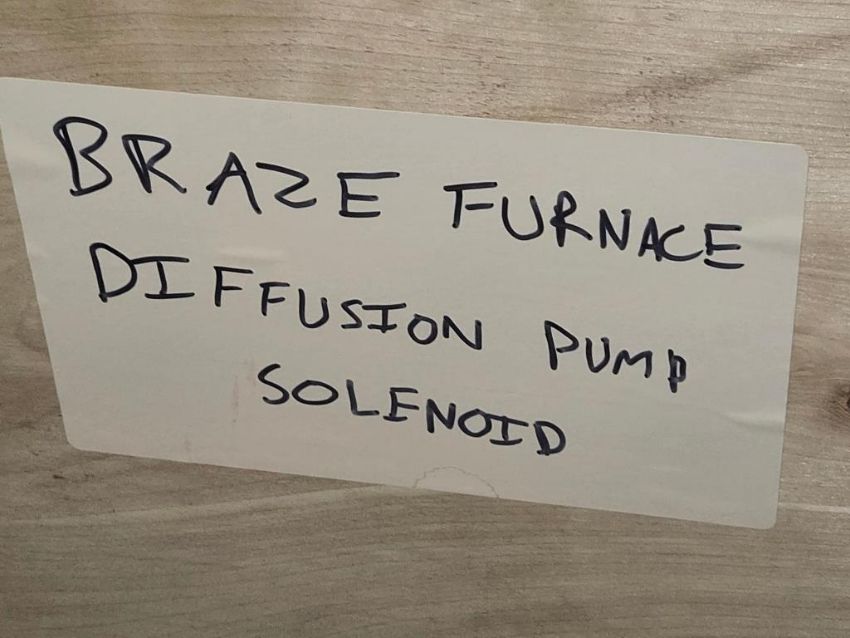 BRAZE FURNACE
DIFFUSION PUMP
SOLENOID